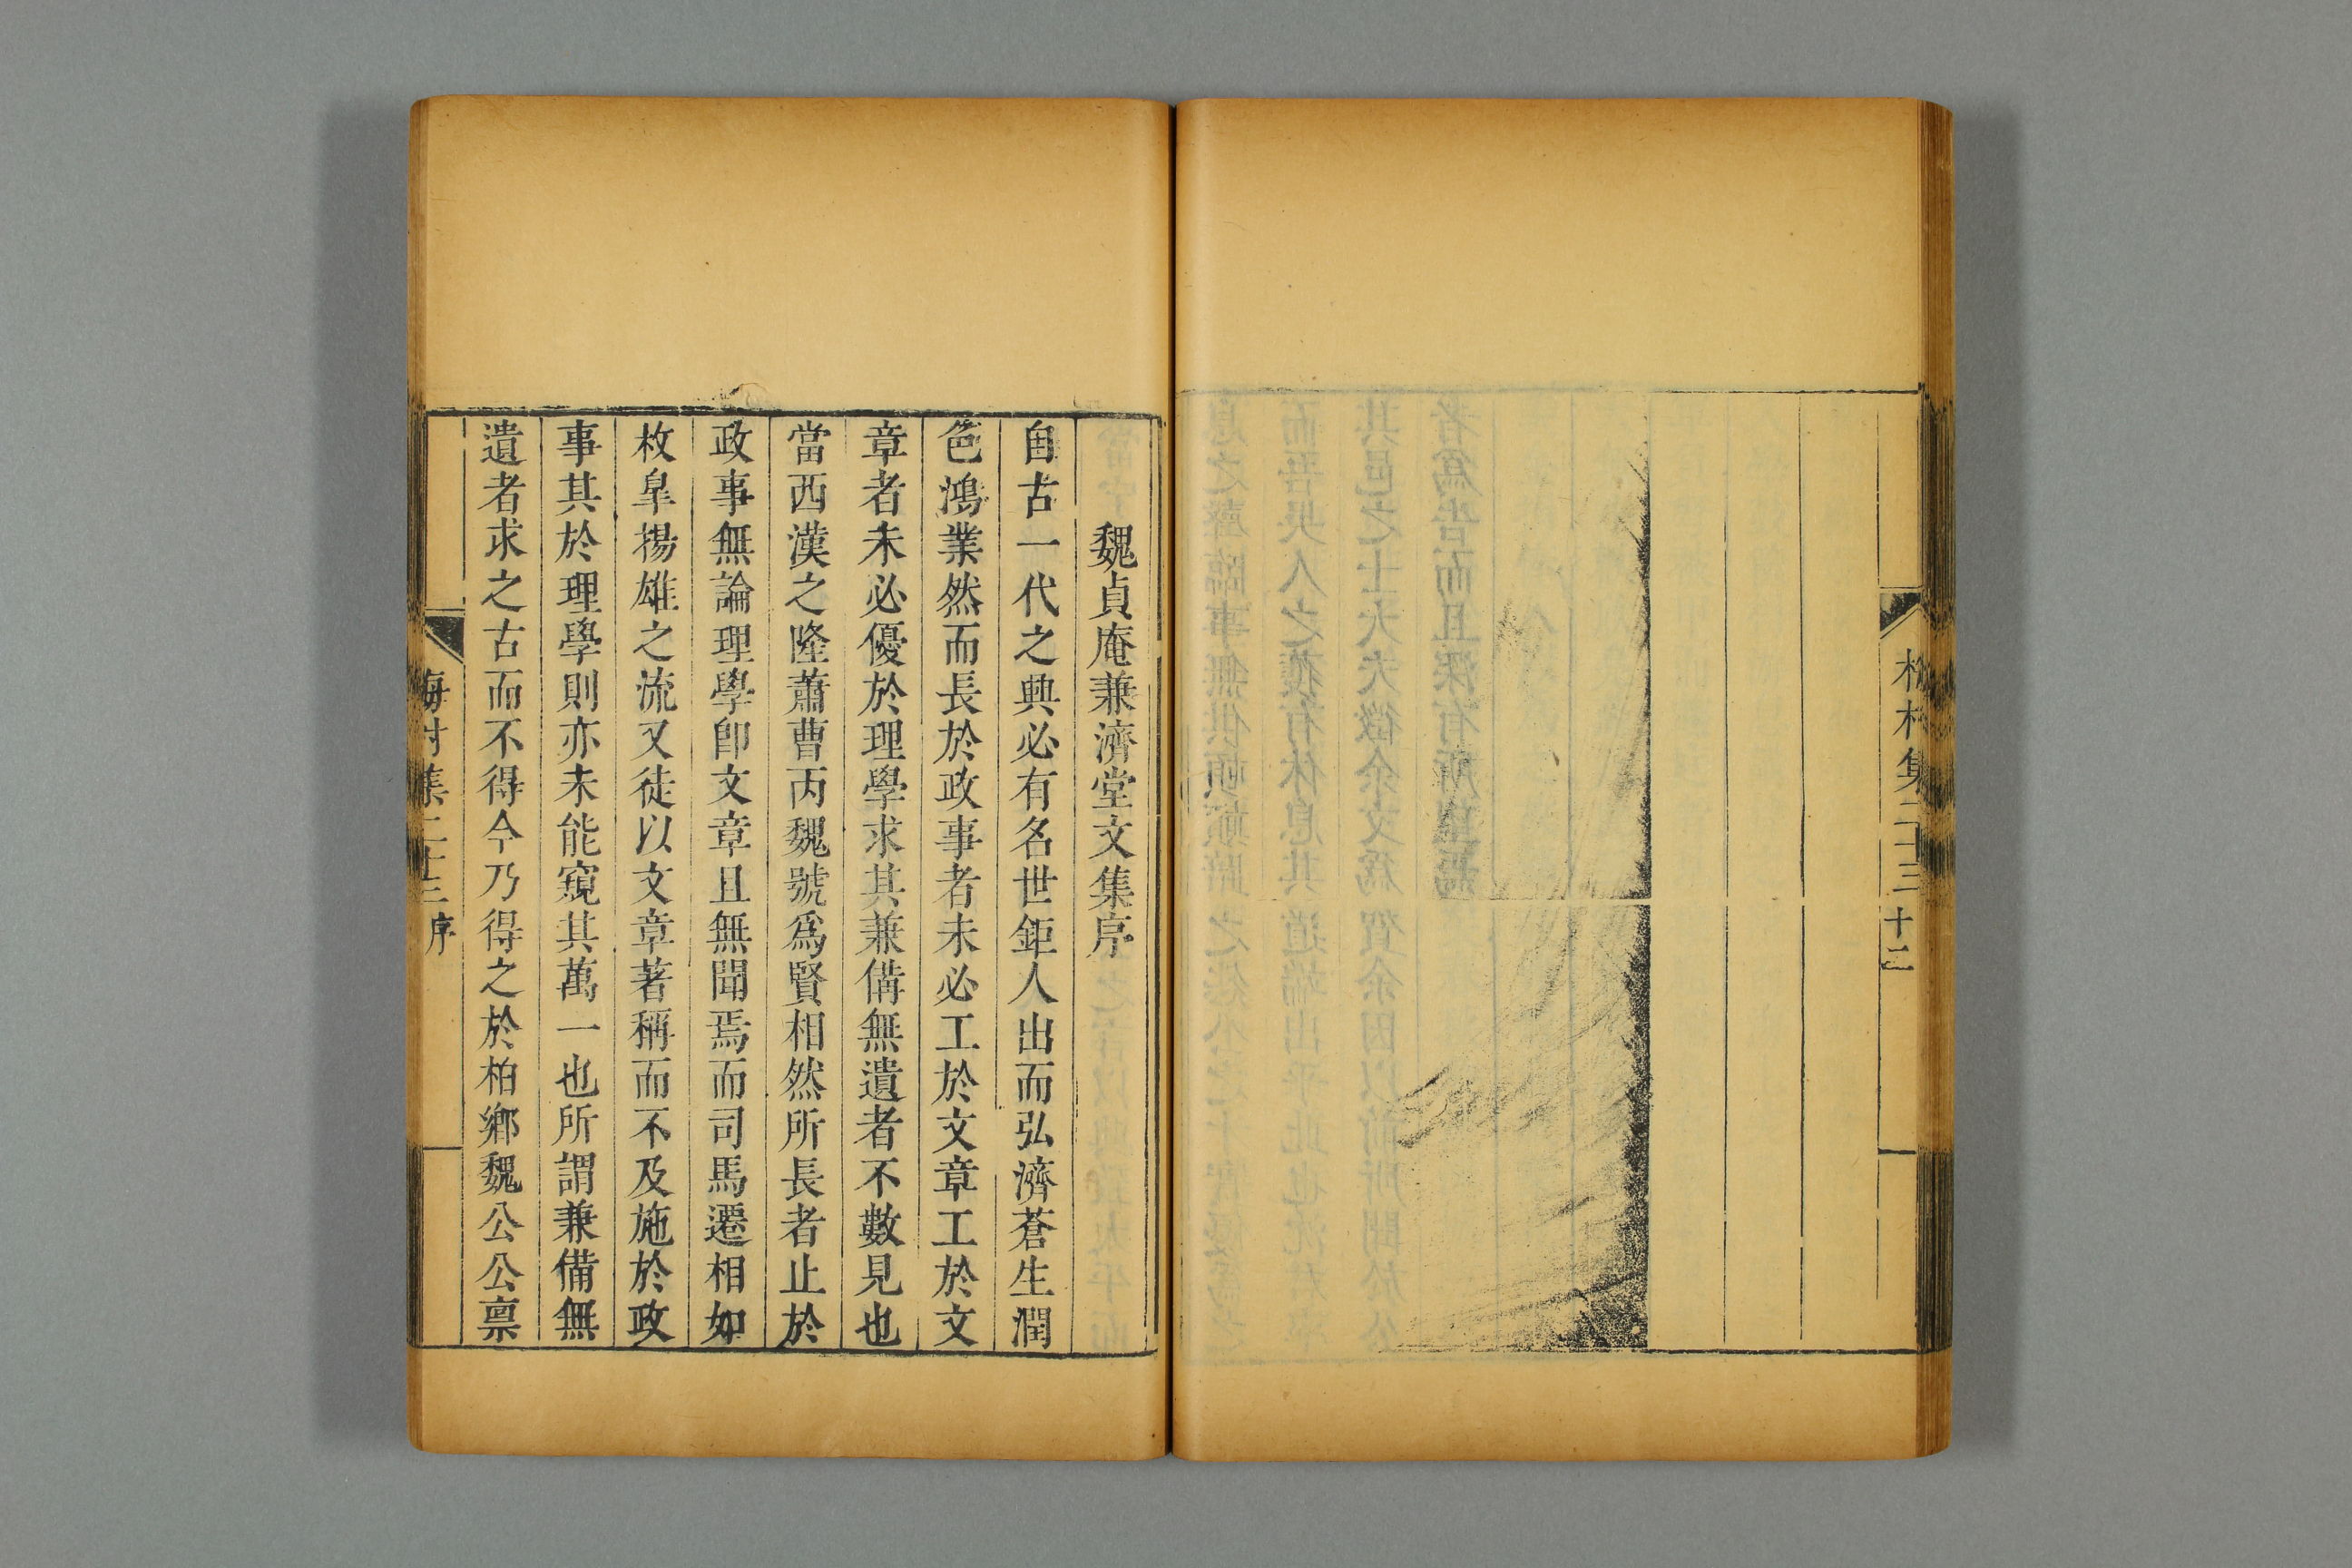 集二十三
十二
魏貞庵兼濟堂文集序
自古一代之興必有名世鉅人出而弘濟蒼生潤
色鴻業然而長於政事者未必工於文章工於文
章者未必優於理學求其兼備無遺者不數見也
當西漢之隆蕭曹丙魏號爲賢相然所長者止於
政事無論理學卽文章且無聞焉而司馬遷相如
枚臯揚雄之流又徒以文章著稱而不及施於政
事其於理學則亦未能窺其萬一也所謂兼備無
遺者求之古而不得今乃得之於柏鄉魏公公稟
集二十三
序